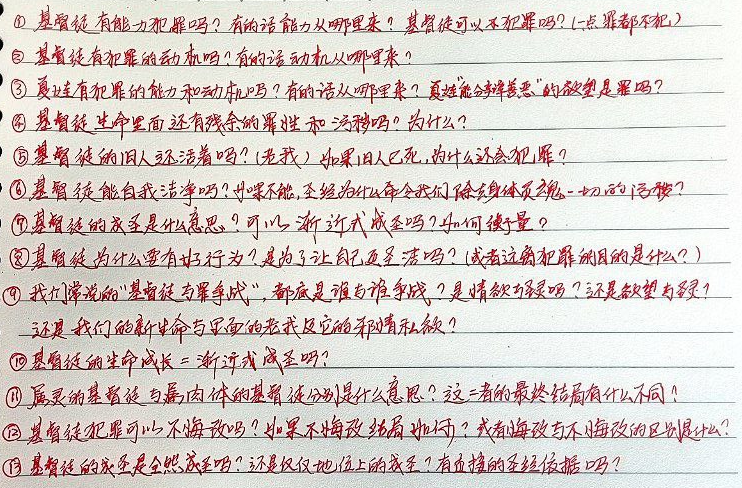 ① 基督徒有能力犯罪吗？有的话能力从哪里来？基督徒可以不犯罪吗？(一点罪都不犯)
② 基督徒有犯罪的动机吗？有的话动机从哪里来？
③ 夏娃有犯罪的能力和动机吗？有的话从哪里来？夏娃"能分辨善恶"的欲望是罪吗？
④ 基督徒生命里面还有残余的罪性和污秽吗？为什么？
⑤ 基督徒的旧人还活着吗？(老我) 如果旧人已死，为什么还会犯罪？
⑥ 基督徒能自我洁净吗？如果不能，圣经为什么命令我们除去身体灵魂一切的污秽？
⑦ 基督徒的成圣是什么意思？可以渐近式成圣吗？如何衡量？
⑧ 基督徒为什么要有好行为？是为了让自己更圣洁吗？(或者远离犯罪的目的是什么？)
⑨ 我们常说的"基督徒与罪争战"，都底是谁与谁争战？是情欲与灵吗？还是欲望与灵？
还是我们的新生命与里面的老我及它的邪情私欲？
⑩ 基督徒的生命成长=渐近式成圣吗？
⑪ 属灵的基督徒与属肉体的基督徒分别是什么意思？这二者的最终结局有什么不同！
⑫ 基督徒犯罪可以不悔改吗？如果不悔改结局如何？或者悔改与不悔改的区别是什么？
⑬ 基督徒的成圣是全然成圣吗？还是仅仅地位上的成圣？有直接的圣经依据吗？